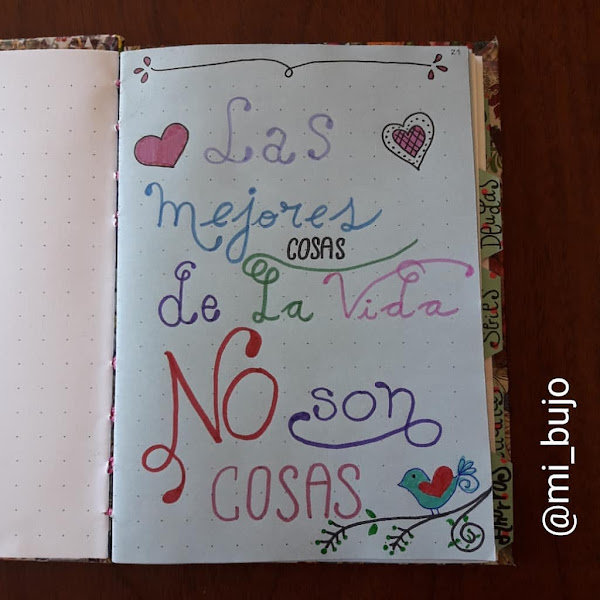 21
Las
Mejores
COSAS
de La Vida
NO son
COSAS
Deudas
@mi_bujo